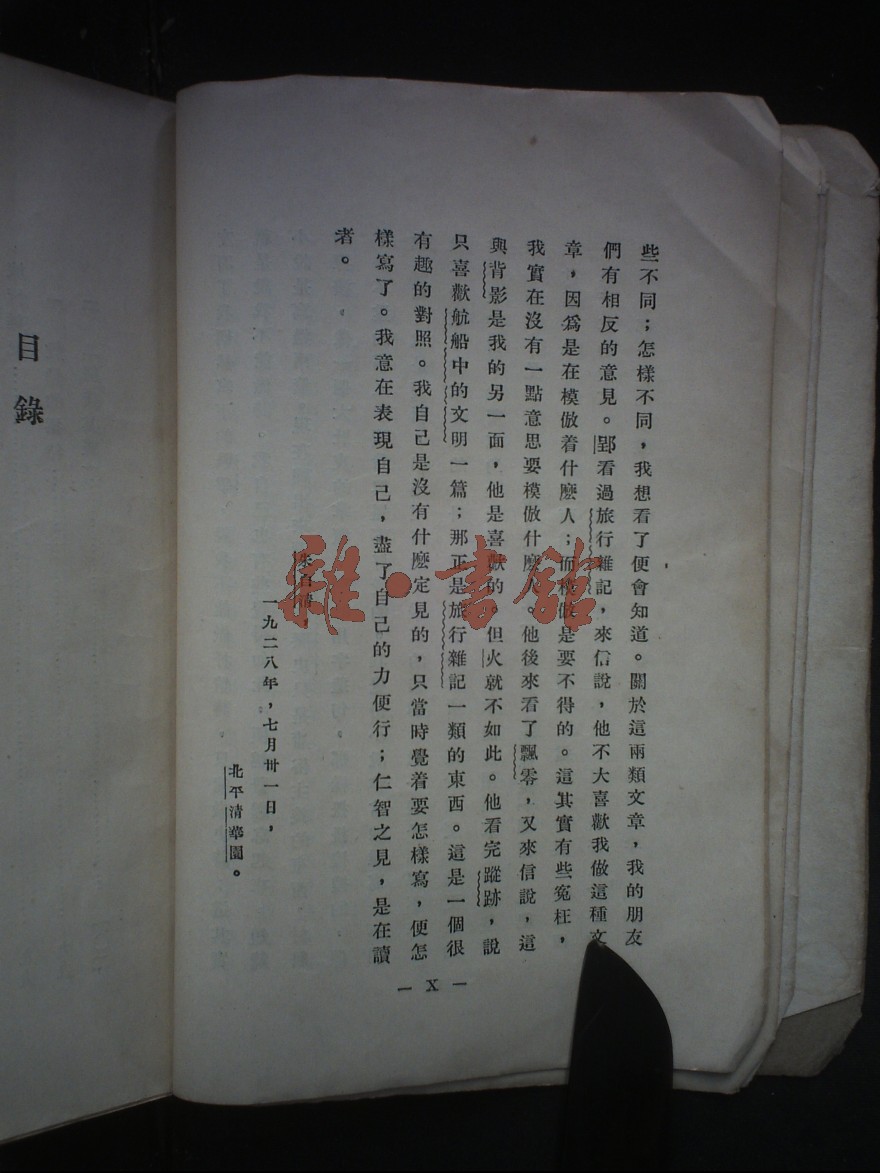 些不同；怎樣不同，我想看了便會知道。關於這兩類文章，我的朋友
們有相反的意見。郢看過旅行雜記，來信說，他不大喜歡我做這種文
章，因爲是在模倣着什麽人；而模倣是要不得的。這其實有些寃枉，
我實在沒有一點意思要模倣什麽人。他後來看了飄零，又來信說，這
與背影是我的另一面，他是喜歡的。但火就不如此。他看完蹤跡，說
只喜歡航船中的文明一篇；那正是旅行雜記一類的東西。這是一個很
有趣的對照。我自己是沒有什麽定見的，只當時覺着要怎樣寫，便怎
樣寫了。我意在表現自己，盡了自己的力便行；仁智之見，是在讀
者。
朱自清，
一九二八年，七月卅一日，
北平清華園。
— X —
目錄
雜·書館